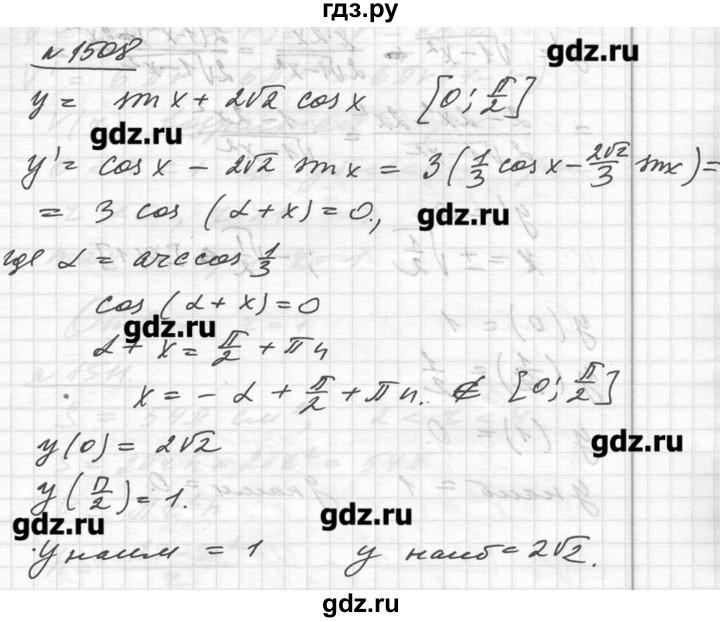 гдз.ру
№ 1508
gdz.ru
y = sin x + 2√2 cos x [0; π/2]
gdz.ru
y' = cos x - 2√2 sin x = 3(1/3 cos x - 2√2/3 sin x) =
= 3 cos (α + x) = 0,
gdz.ru
где α = arccos 1/3
cos (α + x) = 0
gdz.ru
α + x = π/2 + πn
x = - α + π/2 + πn. ∉ [0; π/2]
y(0) = 2√2
gdz.ru
y(π/2) = 1.
gdz.ru
gdz.ru
y наим = 1 y наиб = 2√2.
gdz.ru